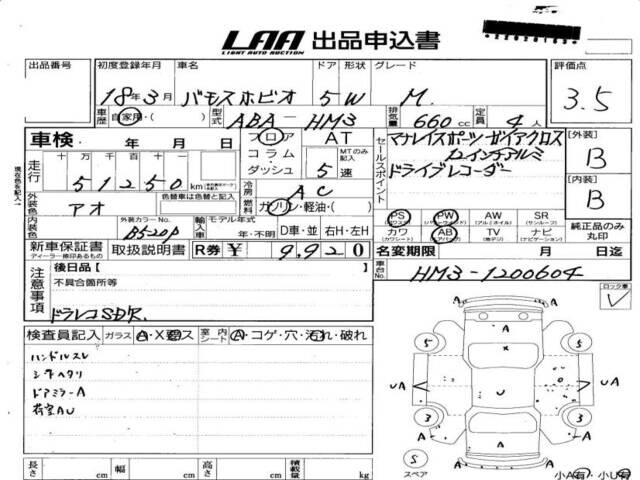 LAA 出品申込書
LIGHT AUTO AUCTION
出品番号 初度登録年月 車名 ドア 形状 グレード 評価点
18年3月 バモスホビオ 5 W M. 3.5
車歴 自家用・ 型式 ABA-HM3 排気量 660cc 定員 4人
車検 年 月 日 フロア コラム・ダッシュ AT MTのみ記入 5速
セールスポイント
ドライブレコーダー
[外装] B
[内装] B
走行 十 万 千 百 十
51250km
冷房 AC
燃料 ガソリン・軽油・( )
外装色 アオ 色替車は色替と記入
内装色 外装カラーNo. B520P
輸入車 モデル年式 年・不明 D車・並 右H・左H
PS PW AW SR
(パワステ) (パワーウインド) (アルミホイル) (サンルーフ)
カワ AB TV ナビ
(カワシート) (エアバック) (地デジ) (ナビゲーション)
純正品のみ丸印
新車保証書 取扱説明書 R券 ¥ 9,920
ディーラー捺印あるもの
名変期限 月 日迄
車台No. HM3-1200604
注意事項
後日品[ ]
不具合箇所等
ドラレコSDR.
ロック車
検査員記入 ガラス A・X要・ス 室内シート A・コゲ・穴・汚れ・破れ
ハンドルスレ
シートヘタリ
ドアミラーA
荷室AU
A A
5 5
A
X
UA U UA
3 3
A
5
スペア
小A有・小U有
長さ cm 幅 cm 高さ cm 積載量 kg
現在色を記入